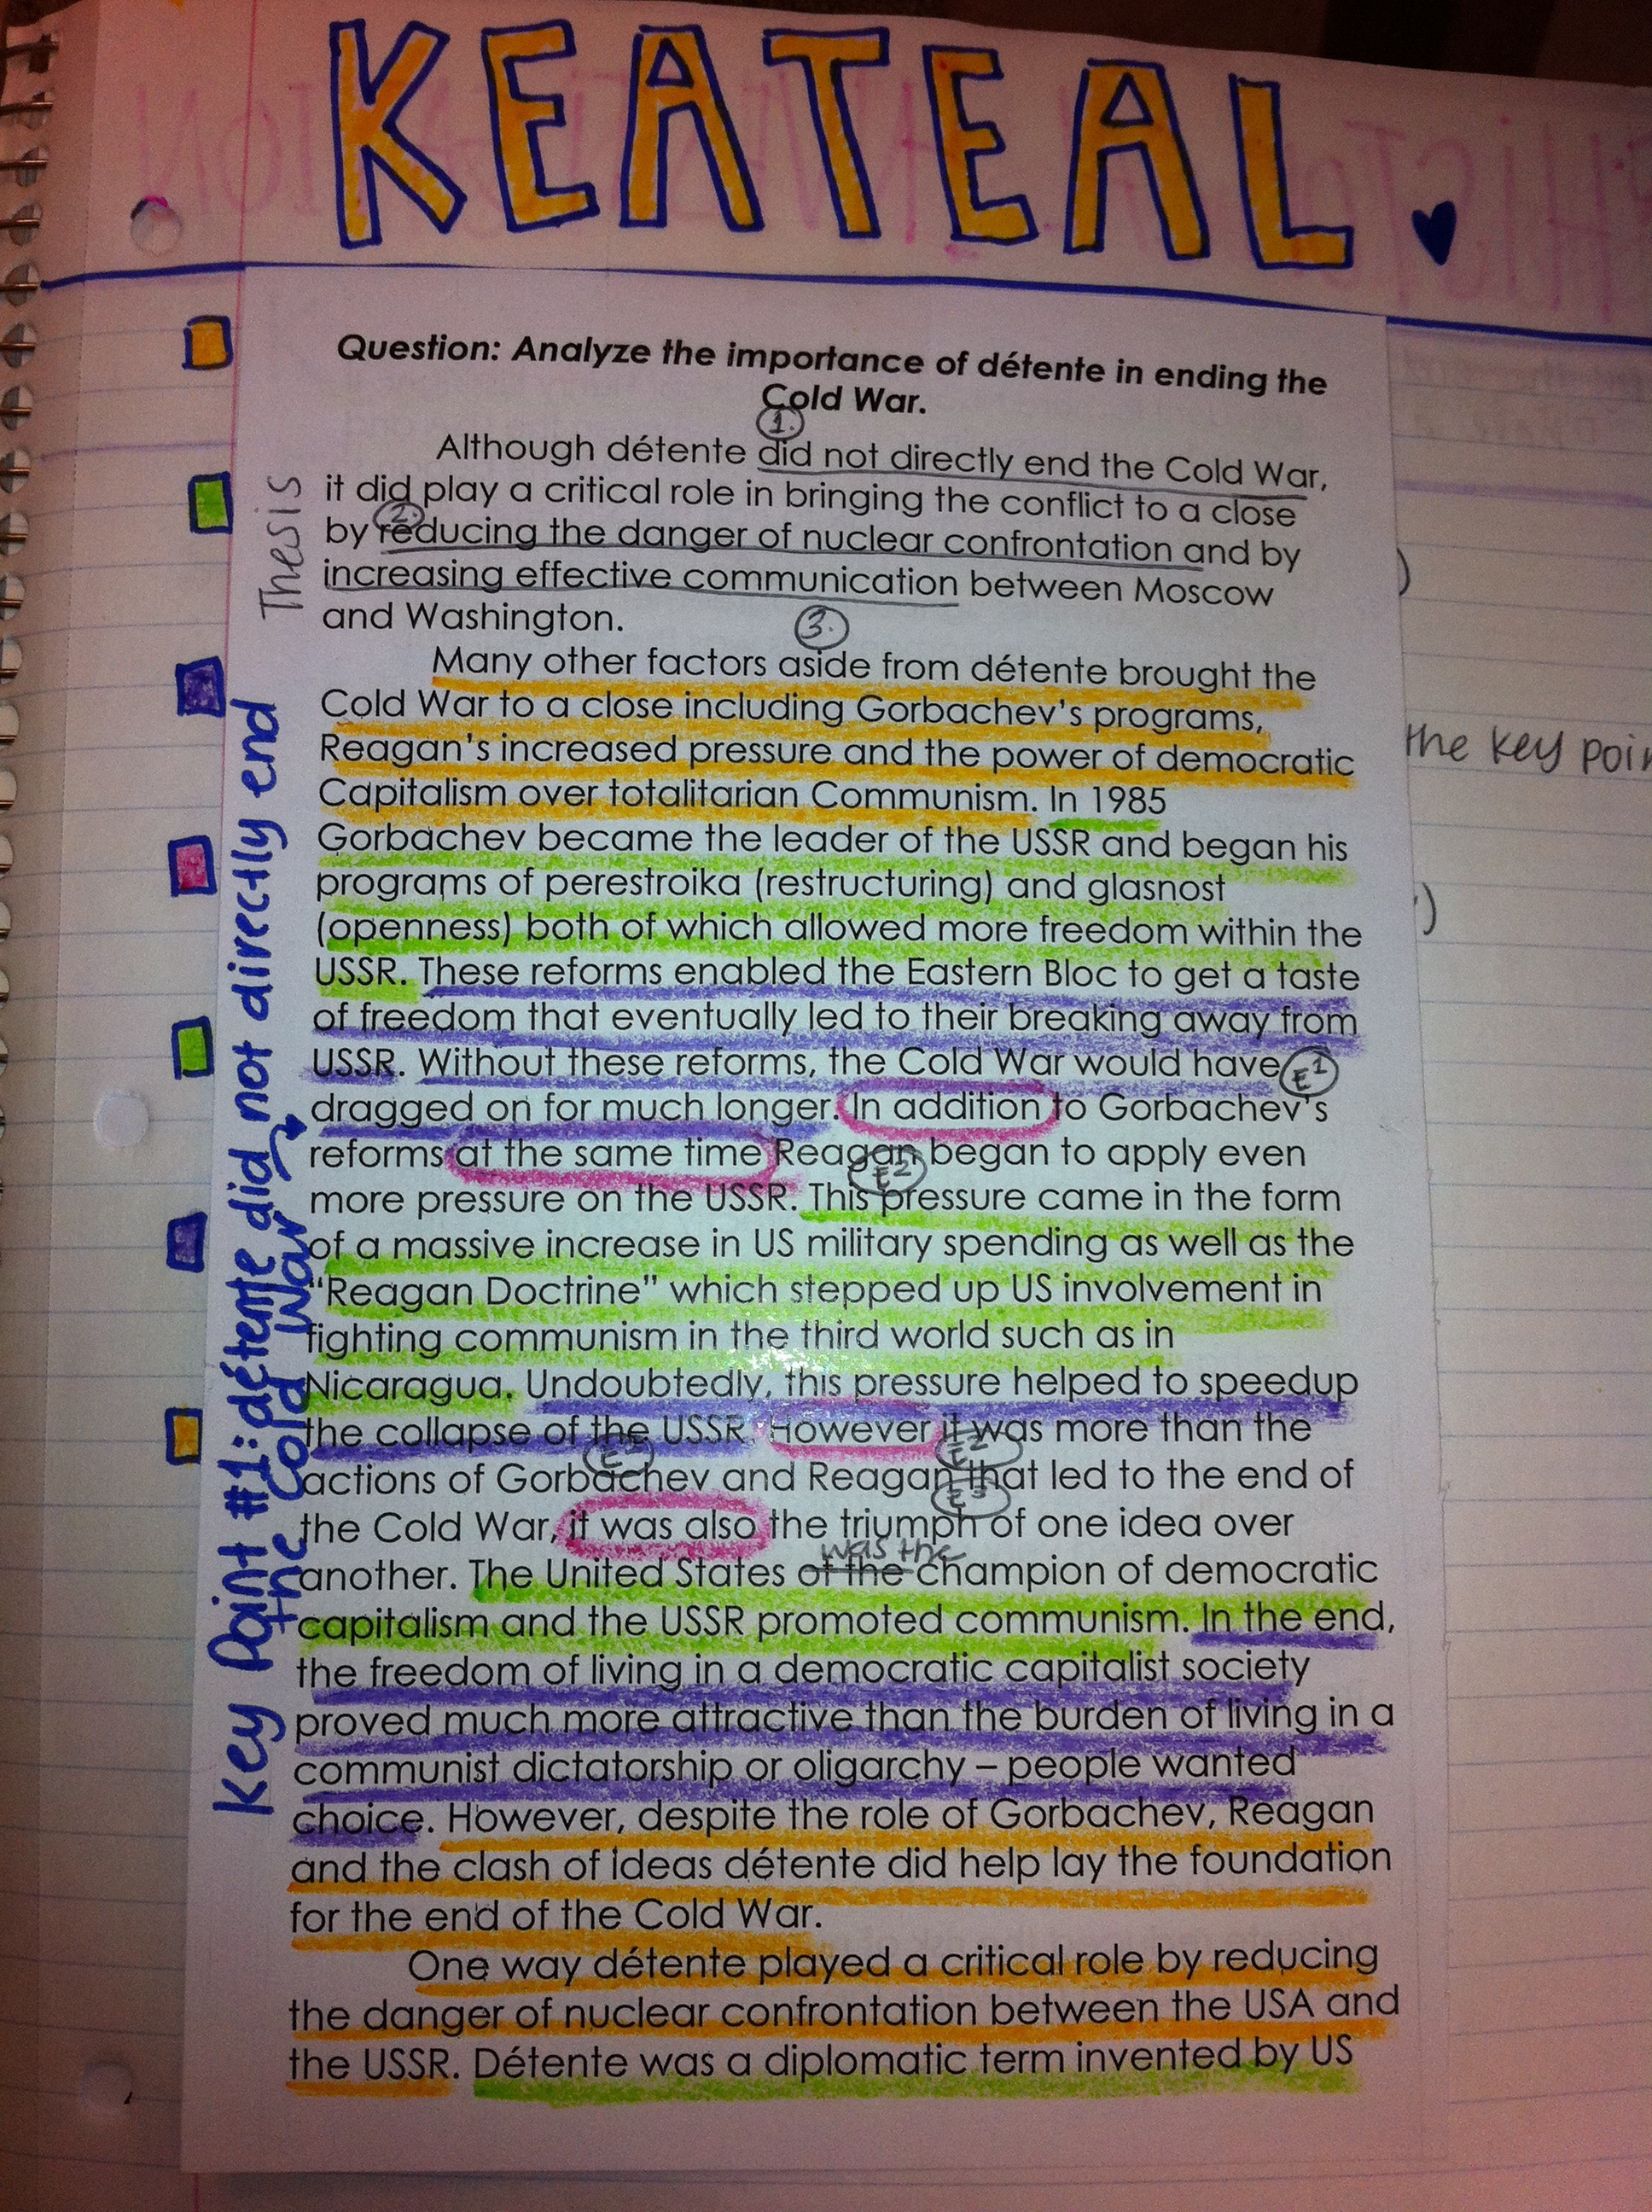 KEATEAL
Question: Analyze the importance of détente in ending the
Cold War.
1.
Although détente did not directly end the Cold War,
it did play a critical role in bringing the conflict to a close
2.
by reducing the danger of nuclear confrontation and by
increasing effective communication between Moscow
and Washington.
3.
Thesis
Many other factors aside from détente brought the
Cold War to a close including Gorbachev's programs,
Reagan's increased pressure and the power of democratic
Capitalism over totalitarian Communism. In 1985
Gorbachev became the leader of the USSR and began his
programs of perestroika (restructuring) and glasnost
(openness) both of which allowed more freedom within the
USSR. These reforms enabled the Eastern Bloc to get a taste
of freedom that eventually led to their breaking away from
USSR. Without these reforms, the Cold War would have
E1
dragged on for much longer. In addition to Gorbachev's
reforms at the same time Reagan began to apply even
E2
more pressure on the USSR. This pressure came in the form
of a massive increase in US military spending as well as the
"Reagan Doctrine" which stepped up US involvement in
fighting communism in the third world such as in
Nicaragua. Undoubtedly, this pressure helped to speedup
the collapse of the USSR. However it was more than the
E2
actions of Gorbachev and Reagan that led to the end of
E3
the Cold War, it was also the triumph of one idea over
was the
another. The United States of the champion of democratic
capitalism and the USSR promoted communism. In the end,
the freedom of living in a democratic capitalist society
proved much more attractive than the burden of living in a
communist dictatorship or oligarchy – people wanted
choice. However, despite the role of Gorbachev, Reagan
and the clash of ideas détente did help lay the foundation
for the end of the Cold War.
One way détente played a critical role by reducing
the danger of nuclear confrontation between the USA and
the USSR. Détente was a diplomatic term invented by US
Key Point #1: détente did not directly end
the Cold War
the key poin